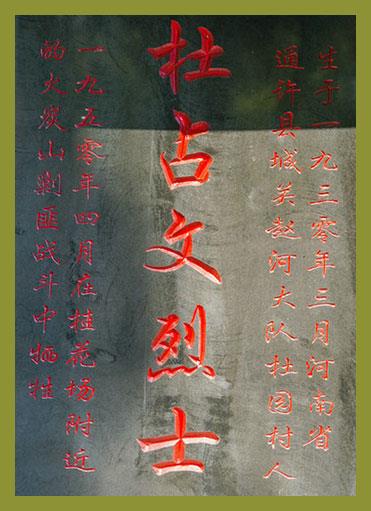 生于一九三零年三月河南省
通许县城关赵河大队杜园村人
杜占文烈士
一九五零年四月在桂花场附近
的火炭山剿匪战斗中牺牲